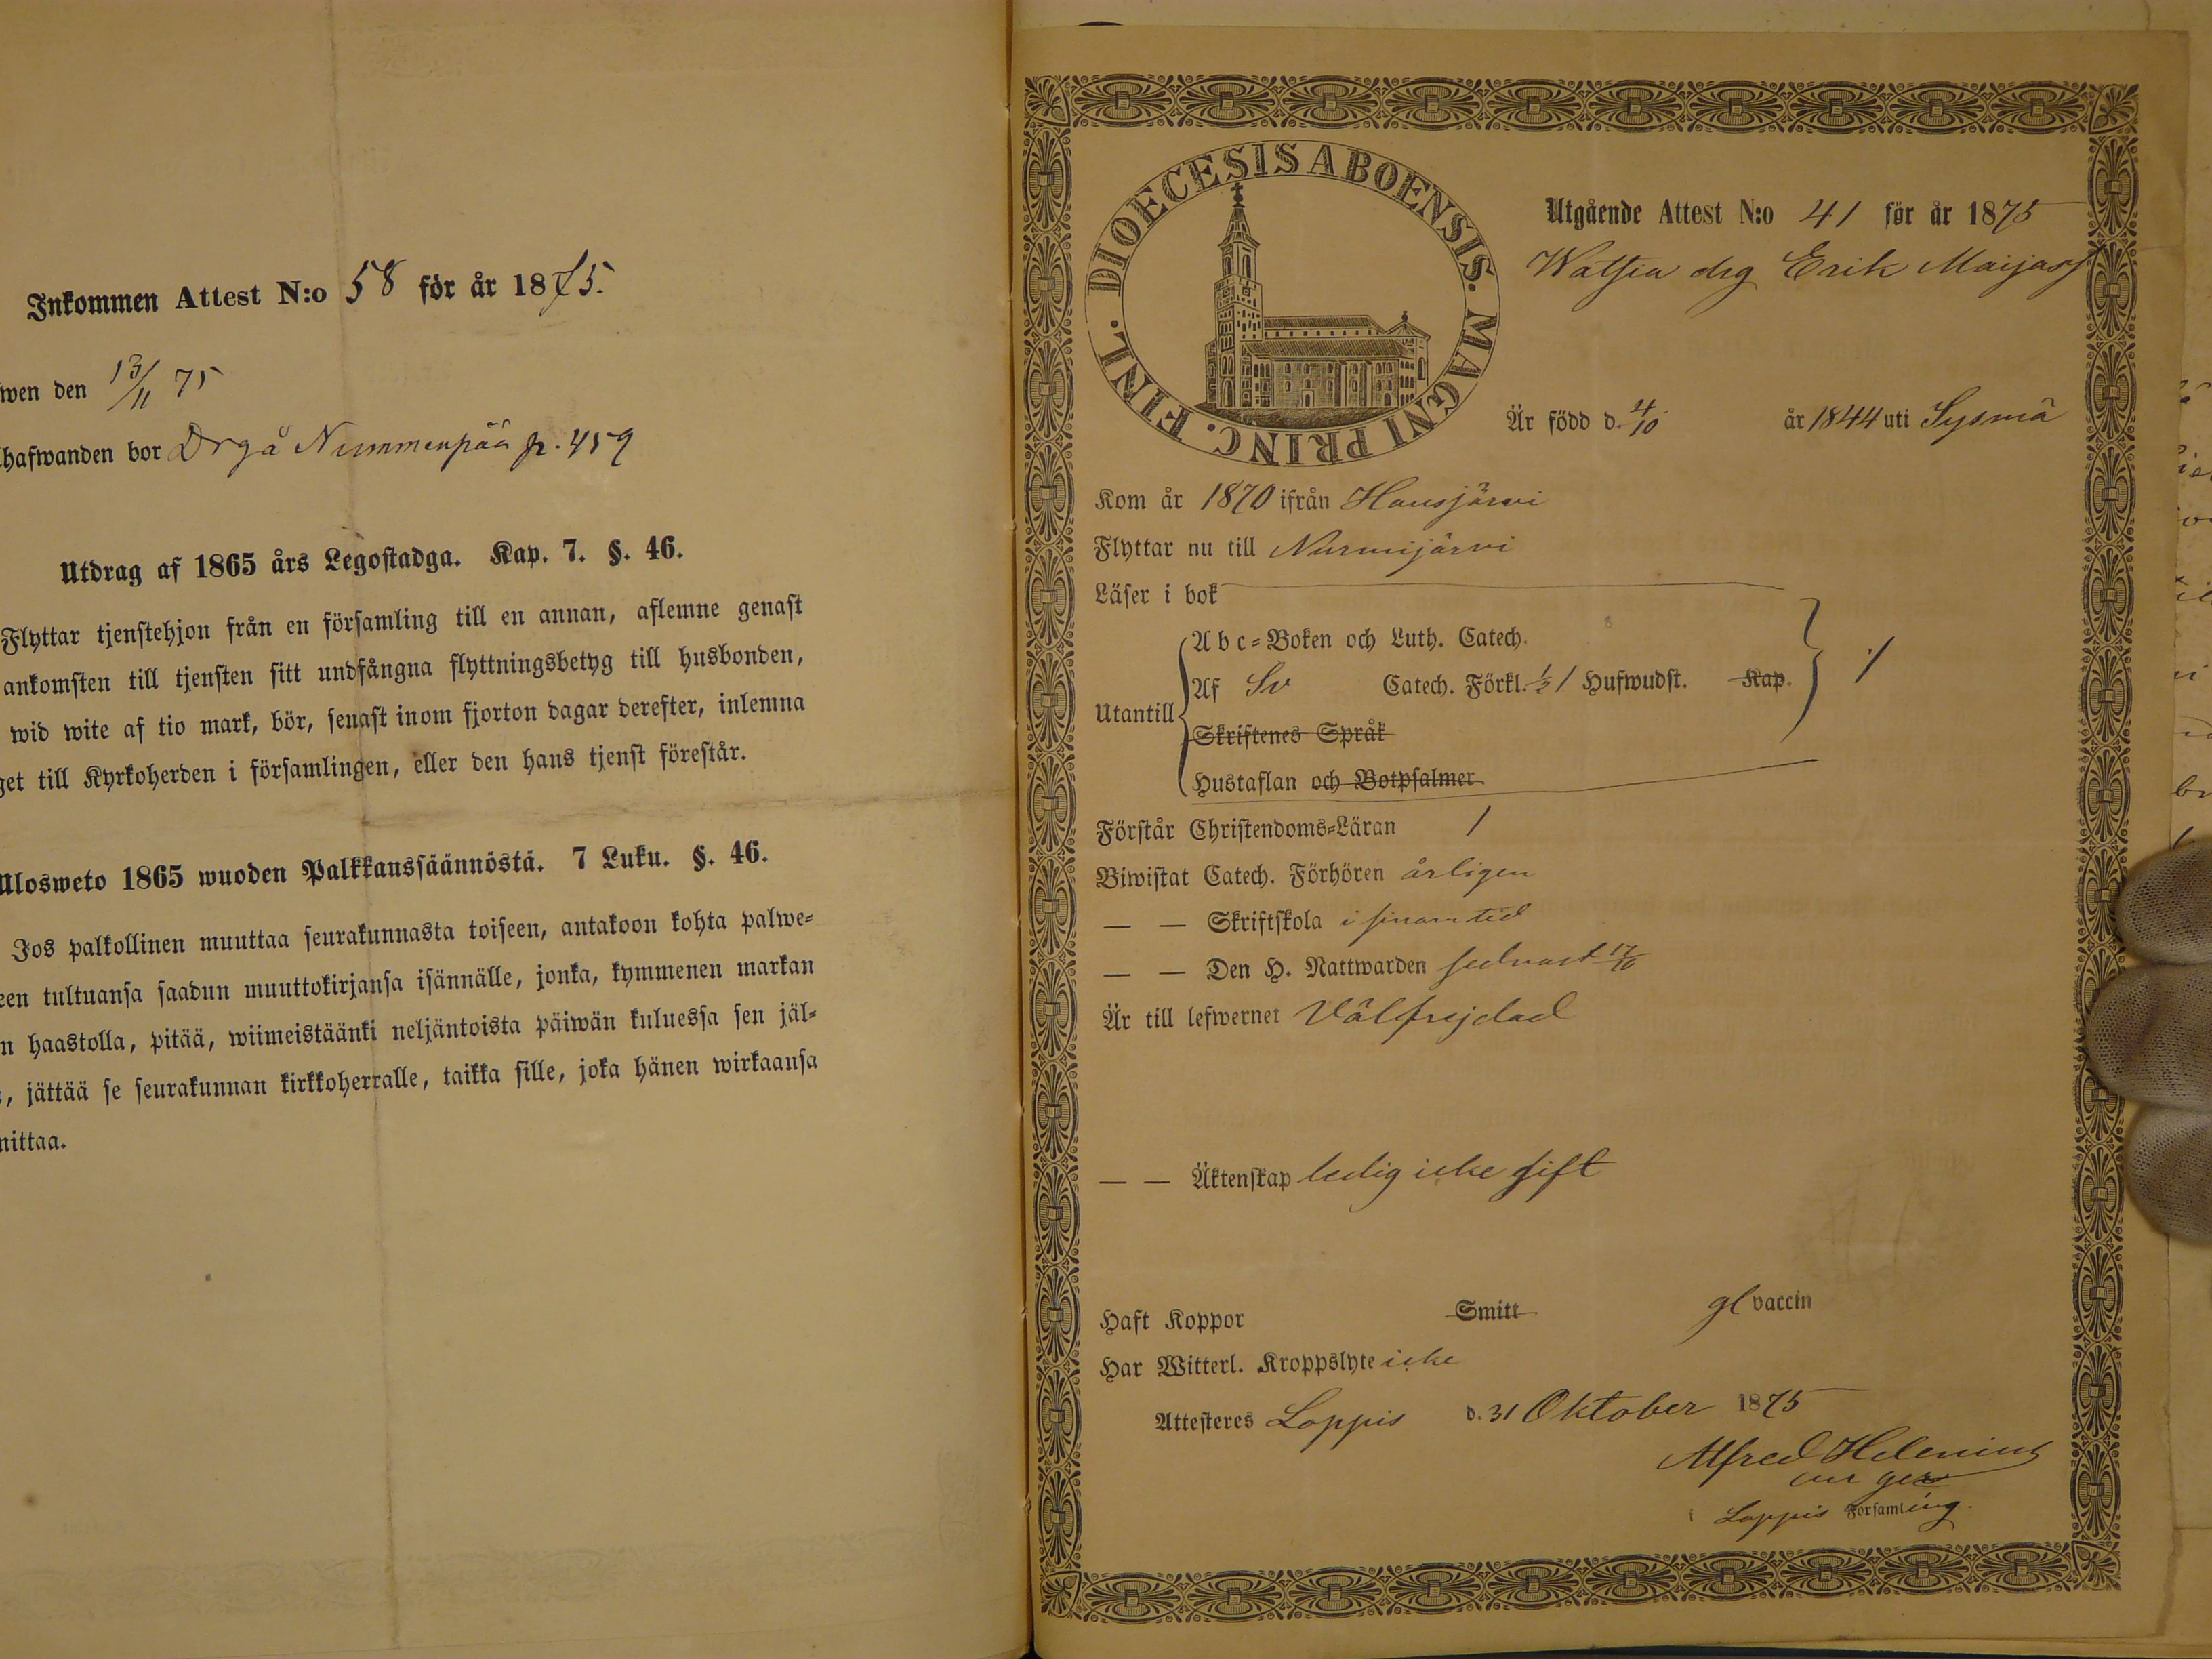 Inkommen Attest N:o 58 för år 1875.
wen den 13/11 75
hafwanden bor Drg å Nummenpää p. 459
Utdrag af 1865 års Legostadga. Kap. 7. §. 46.
Flyttar tjenstehjon från en församling till en annan, aflemne genast
ankomsten till tjensten sitt undfångna flyttningsbetyg till husbonden,
wid wite af tio mark, bör, senast inom fjorton dagar derefter, inlemna
get till Kyrkoherden i församlingen, eller den hans tjenst förestår.
Ulosweto 1865 wuoden Palkkaussäännöstä. 7 Luku. §. 46.
Jos palkollinen muuttaa seurakunnasta toiseen, antakoon kohta palwe=
een tultuansa saadun muuttokirjansa isännälle, jonka, kymmenen markan
n haastolla, pitää, wiimeistäänki neljäntoista päiwän kuluessa sen jäl=
, jättää se seurakunnan kirkkoherralle, taikka sille, joka hänen wirkaansa
mittaa.
DIOECESIS ABOENSIS. MAGNI PRINC. FINL.
Utgående Attest N:o 41 för år 1875
drg Erik
Är född d. 4/10 år 1844 uti Sysmä
Kom år 1870 ifrån Hausjärvi
Flyttar nu till Nurmijärvi
Läser i bok
Abc=Boken och Luth. Catech.
Utantill Af Sv Catech. Förkl. 1/2 1 Hufwudst. Kap. 1
Skriftenes Språk
Hustaflan och Botpsalmer
Förstår Christendoms=Läran 1
Biwistat Catech. Förhören årligen
— — Skriftskola i sinom tid
— — Den H. Nattwarden sednast 17/10
Är till lefwernet Välfrejdad
— — Äktenskap ledig icke gift
Haft Koppor Smitt gl vaccin
Har Witterl. Kroppslyte icke
Attesteres Loppis d. 31 Oktober 1875
Alfred Helenius
i Loppis Församling.